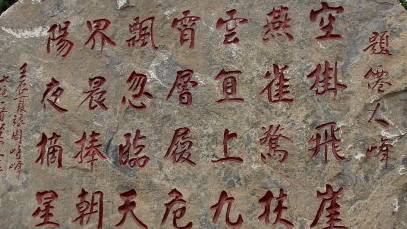 題僊人峰
空掛飛崖
燕雀驚扶
雲直上九
霄層履危
飄忽臨天
界晨捧朝
陽夜摘星